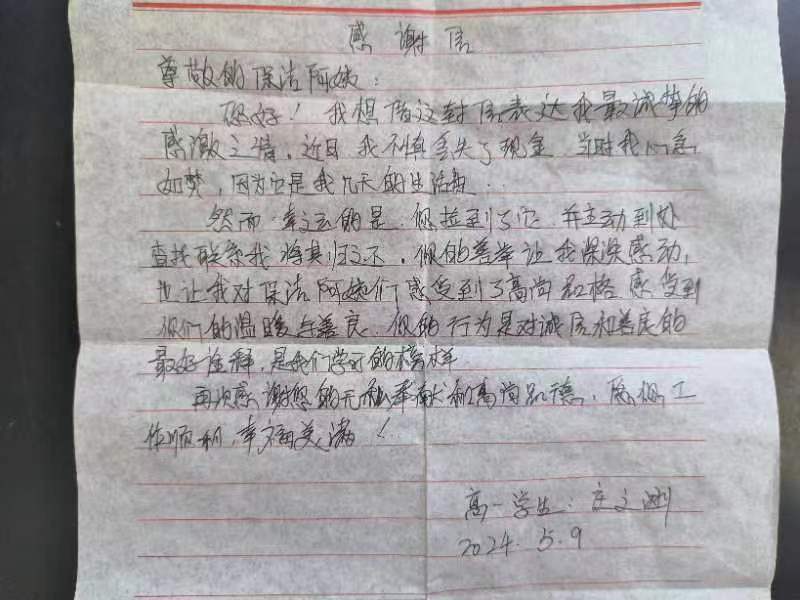 感谢信
尊敬的保洁阿姨：
您好！我想借这封信表达我最诚挚的
感激之情，近日我不慎丢失了现金 当时我心急
如焚，因为它是我几天的生活费..
然而 幸运的是 您捡到了它 并主动到处
查找联系我 将其归还，您的善举让我深深感动，
也让我对保洁阿姨们感受到了高尚品格 感受到
你们的温暖与善良 您的行为是对诚信和善良的
最好诠释，是我们学习的榜样
再次感谢您的无私奉献和高尚品德，愿您工
作顺利，幸福美满！
高一学生：庄文
2024.5.9